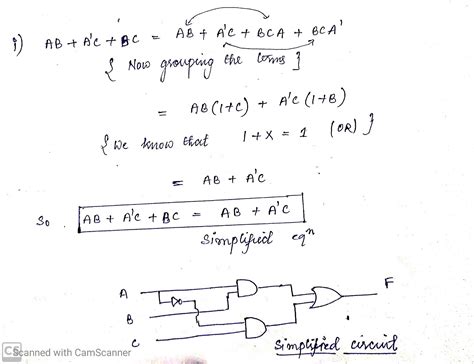 i) AB + A'C + BC = AB + A'C + BCA + BCA'
{ Now grouping the terms }
= AB(1+C) + A'C (1+B)
{ We know that 1+X = 1 (OR) }
= AB + A'C
So AB + A'C + BC = AB + A'C
Simplified eqn
A
B
C
F
Simplified circuit
CS Scanned with CamScanner